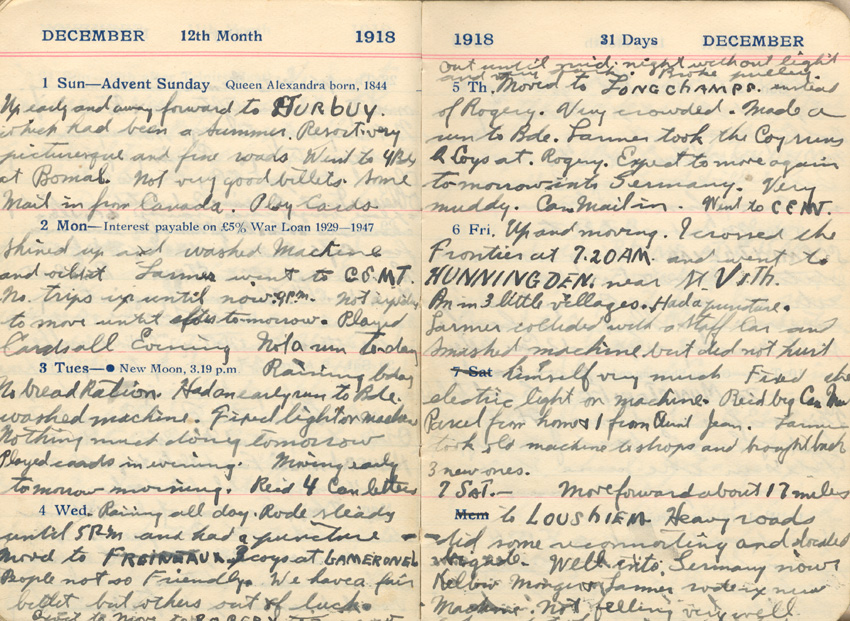 DECEMBER 12th Month 1918
1 Sun—Advent Sunday Queen Alexandra born, 1844
Up early and away forward to DURBUY.
which had been a Summer Resort very
picturesque and fine roads Went to 4 Bde
at Bomal. Not very good billets. Some
Mail in from Canada. Play Cards
2 Mon—Interest payable on £5% War Loan 1929—1947
Shined up and washed Machine
and oiled it Larmer went to C.E.M.T.
No. trips in until now 9 P.M. Not
to move until after tomorrow. Played
Cards all Evening Not a run to-day
3 Tues—● New Moon, 3.19 p.m Raining today
No bread Ration. Had an early run to Bde.
washed machine. Fixed light on machine
Nothing much doing tomorrow
Played cards in evening. Moving early
tomorrow morning. Recd 4 Can letters
4 Wed. Raining all day. Rode steady
until 5 P.M and had a puncture
Moved to coys at
People not so Friendly. We have a fair
billet but others out of luck.
to Move to
1918 31 Days DECEMBER
out until mid-night without light
and Broke pulley.
5 Th. Moved to LONGCHAMPS. instead
of Rogery. Very crowded. Made a
run to Bde. Larmer took the Coy runs
2 Coys at. Rogery. Expect to move again
tomorrow into Germany. Very
muddy. Can Mail in. Went to
6 Fri. Up and moving. I crossed the
Frontier at 7.20 AM. and went to
HUNNINGDEN. near St VITH.
Bn in 3 little villages. Had a puncture.
Larmer collided with a Staff Car and
smashed machine but did not hurt
7 Sat himself very much Fixed the
electric light on machine. Recd by Can Mail
Parcel from home & 1 from Aunt Jean. Larmer
took old machine to shops and brought back
3 new ones.
7 SAT.— Move forward about 17 miles
Mem to LOUSHIEM. Heavy roads
did some reconnoitring and
Well into Germany now
Larmer rode in new
Machine. Not felling very well